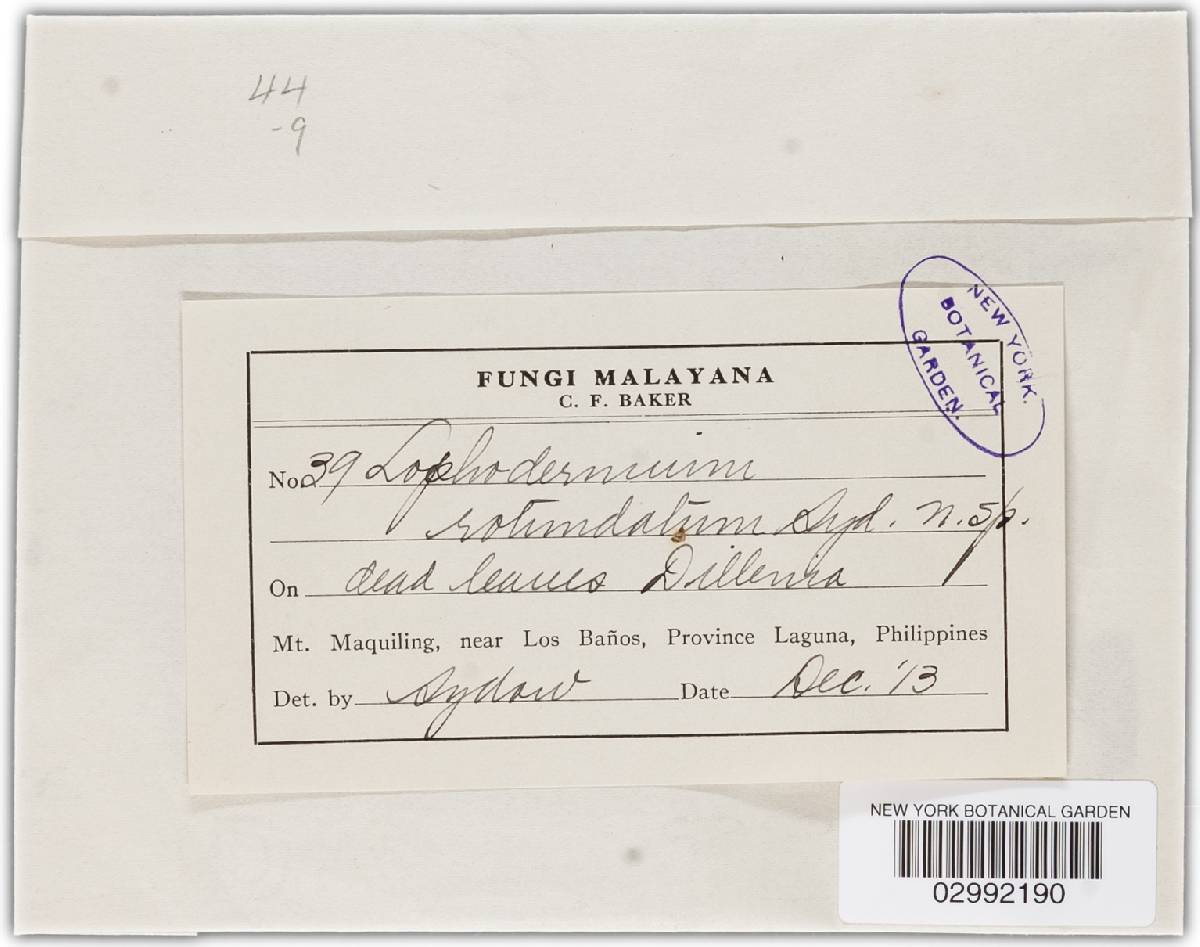 44
-9
NEW YORK.
BOTANICAL
GARDEN.
FUNGI MALAYANA
C. F. BAKER
No. 39 Lophodermium
rotundatum Syd. n. sp.
On dead leaves Dillenia
Mt. Maquiling, near Los Baños, Province Laguna, Philippines
Det. by Sydow Date Dec. '13
NEW YORK BOTANICAL GARDEN
02992190